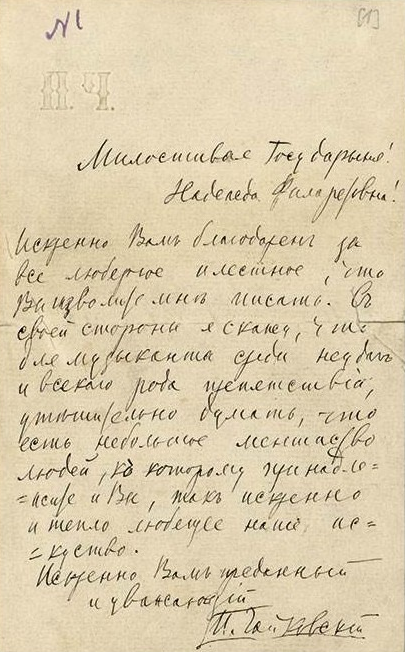 N1
[1]
П.Ч.
Милостивая Государыня!
Надежда Филаретовна!
Искренно Вамъ благодаренъ за
все любезное и лестное, что
Вы изволите мнѣ писать. Съ
своей стороны я скажу, что
для музыканта среди неудачъ
и всякаго рода препятствій,
утѣшительно думать, что
есть небольшое меньшинство
людей, къ которому принадле=
=жите и Вы, такъ искренно
и тепло любящее наше ис=
=кусство.
Искренно Вамъ преданный
и уважающій
П. Чайковскій